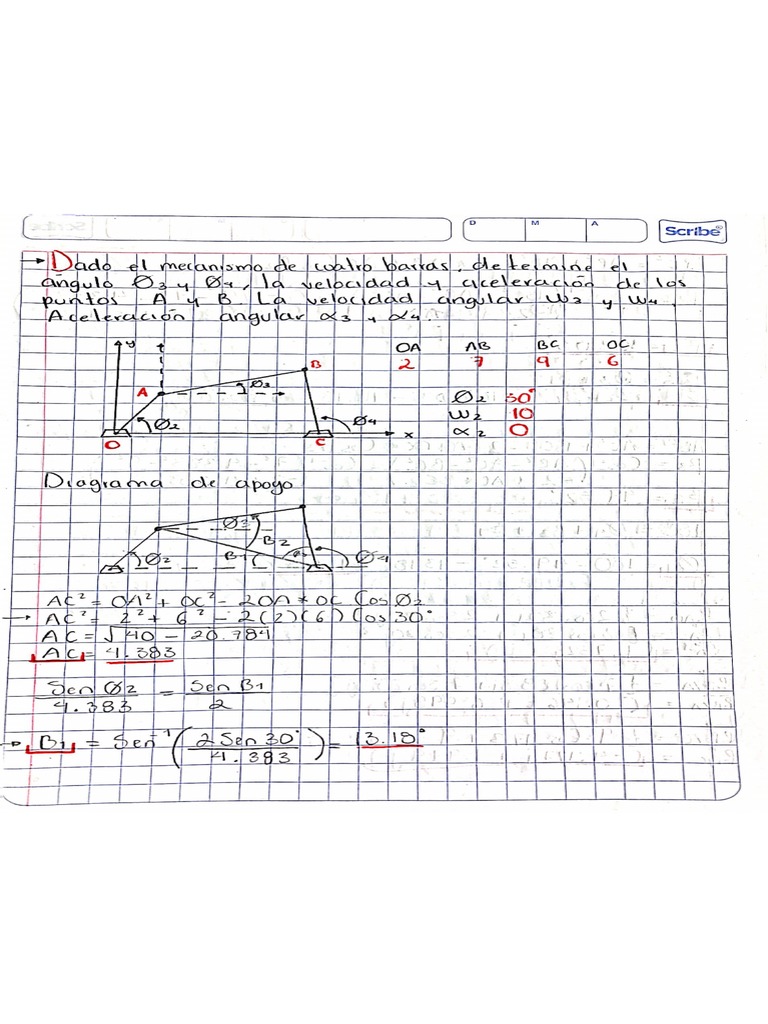 D M A
Scribe
→ Dado el mecanismo de cuatro barras, determine el
ángulo Ø3 y Ø4, la velocidad y aceleración de los
puntos A y B. La velocidad angular ω3 y ω4.
Aceleración angular α3 y α4.
y t
B
A Ø3
Ø2 Ø4
O C x
OA AB BC OC
2 7 9 6
Ø2 30°
ω2 10
α2 0
Diagrama de apoyo
Ø3
B2
Ø2 B1 Ø4
AC² = OA² + OC² - 2OA * OC Cos Ø2
→ AC² = 2² + 6² - 2(2)(6) Cos 30°
AC = √40 - 20.784
AC = 4.383
Sen Ø2 / 4.383 = Sen B1 / 2
→ B1 = Sen⁻¹ (2 Sen 30° / 4.383) = 13.18°